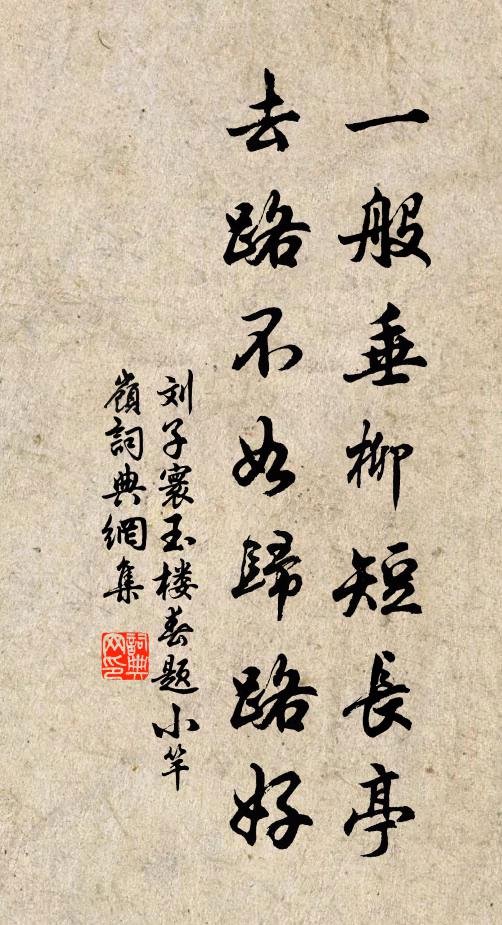 一般垂柳短長亭
去路不如歸路好
刘子寰玉楼春题小竿
嶺詞典網集
詞典
网印